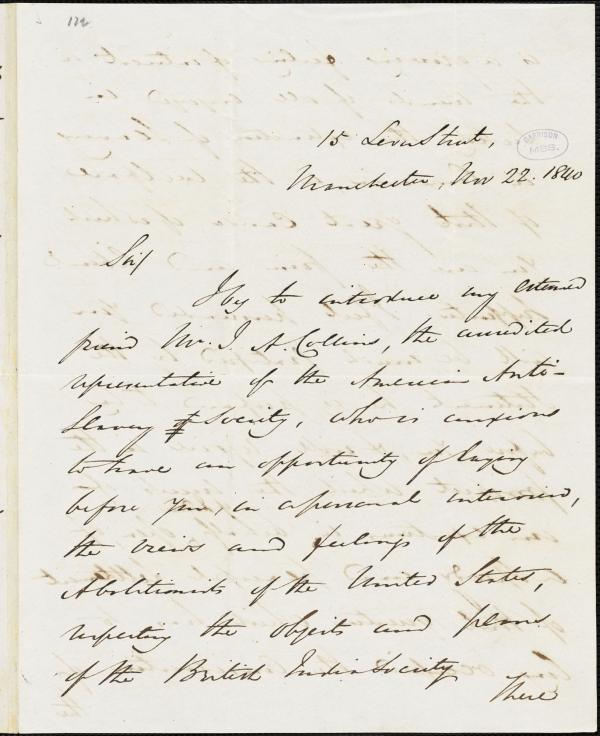 122
15 Lever Street,
GARRISON
MSS.
Manchester, Nov 22. 1840
Sir/
I beg to introduce my esteemed
friend Mr. J. A. Collins, the accredited
representative of the American Anti-
Slavery Society, who is anxious
to have an opportunity of laying
before you, in a personal interview,
the views and feelings of the
Abolitionists of the United States,
respecting the objects and plans
of the British India Society
There